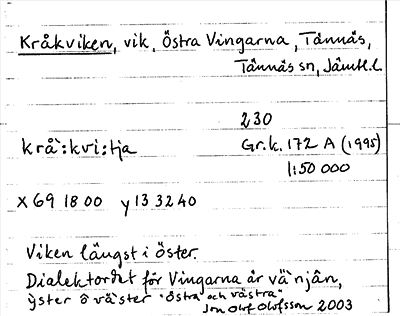 Kråkviken, vik, Östra Vingarna, Tännäs,
Tännäs sn, Jämtl. l.
230
krå`:kvi:tja
Gr.k. 172 A (1995)
1:50 000
x 69 18 00 y 13 32 40
Viken längst i öster.
Dialektordet för Vingarna är vä`njân,
yster ô vä`ster "östra och västra"
Jon Olof Olofsson 2003